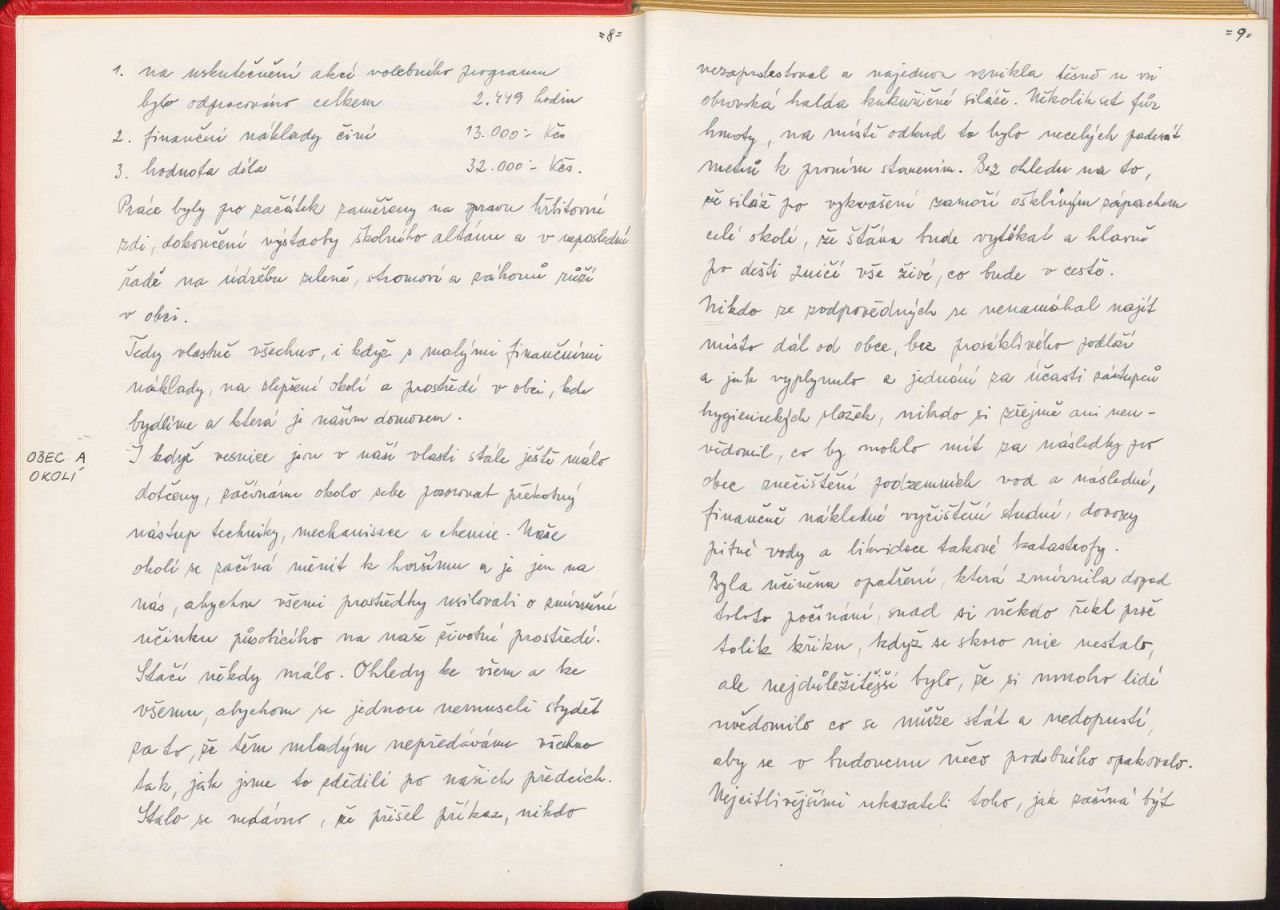 =8=
1. na uskutečnění akcí volebního programu
bylo odpracováno celkem 2.449 hodin
2. finanční náklady činí 13.000:- Kčs
3. hodnota díla 32.000:- Kčs.
Práce byly po začátek zaměřeny na zpravu hřbitovní
zdi, dokončení výstavby školního altánu a v neposlední
řadě na údržbu zeleně, stromoví a záhonů růží
v obci.
Tedy vlastně všechno, i když s malými finančními
náklady, na zlepšení okolí a prostředí v obci, kde
bydlíme a která je naším domovem.
OBEC A
OKOLÍ
I když vesnice jsou v naší vlasti stále ještě málo
dotčeny, začínáme okolo sebe pozorovat překotný
nástup techniky, mechanisace a chemie. Naše
okolí se začíná měnit k horšímu a je jen na
nás, abychom všemi prostředky usilovali o zmírnění
účinku působícího na naše životní prostředí.
Stačí někdy málo. Ohledy ke všem a ke
všemu, abychom se jednou nemuseli stydět
za to, že těm mladým nepředáváme všechno
tak, jak jsme to zdědili po našich předcích.
Stalo se nedávno, že přišel příkaz, nikdo
=9=
nezaprotestoval a najednou vznikla těsně u vsi
obrovská halda kukuřičné siláže. Několik set fůr
hmoty, na místě odkud to bylo necelých padesát
metrů k prvním stavením. Bez ohledu na to,
že siláž po vykvašení zamoří ošklivým zápachem
celé okolí, že šťáva bude vytékat a hlavně
po dešti zničí vše živé, co bude v cestě.
Nikdo ze zodpovědných se nenamáhal najít
místo dál od obce, bez prosáklivého podloží
a jak vyplynulo z jednání za účasti zástupců
hygienických složek, nikdo si zřejmě ani neu-
vědomil, co by mohlo mít za následky pro
obec znečištění podzemních vod a následné,
finančně nákladné vyčištění studní, dovozy
pitné vody a likvidace takové katastrofy.
Byla učiněna opatření, která zmírnila dopad
tohoto počínání, snad si někdo řekl proč
tolik křiku, když se skoro nic nestalo,
ale nejdůležitější bylo, že si mnoho lidí
uvědomilo co se může stát a nedopustí,
aby se v budoucnu něco podobného opakovalo.
Nejcitlivějšími ukazateli toho, jak začíná být